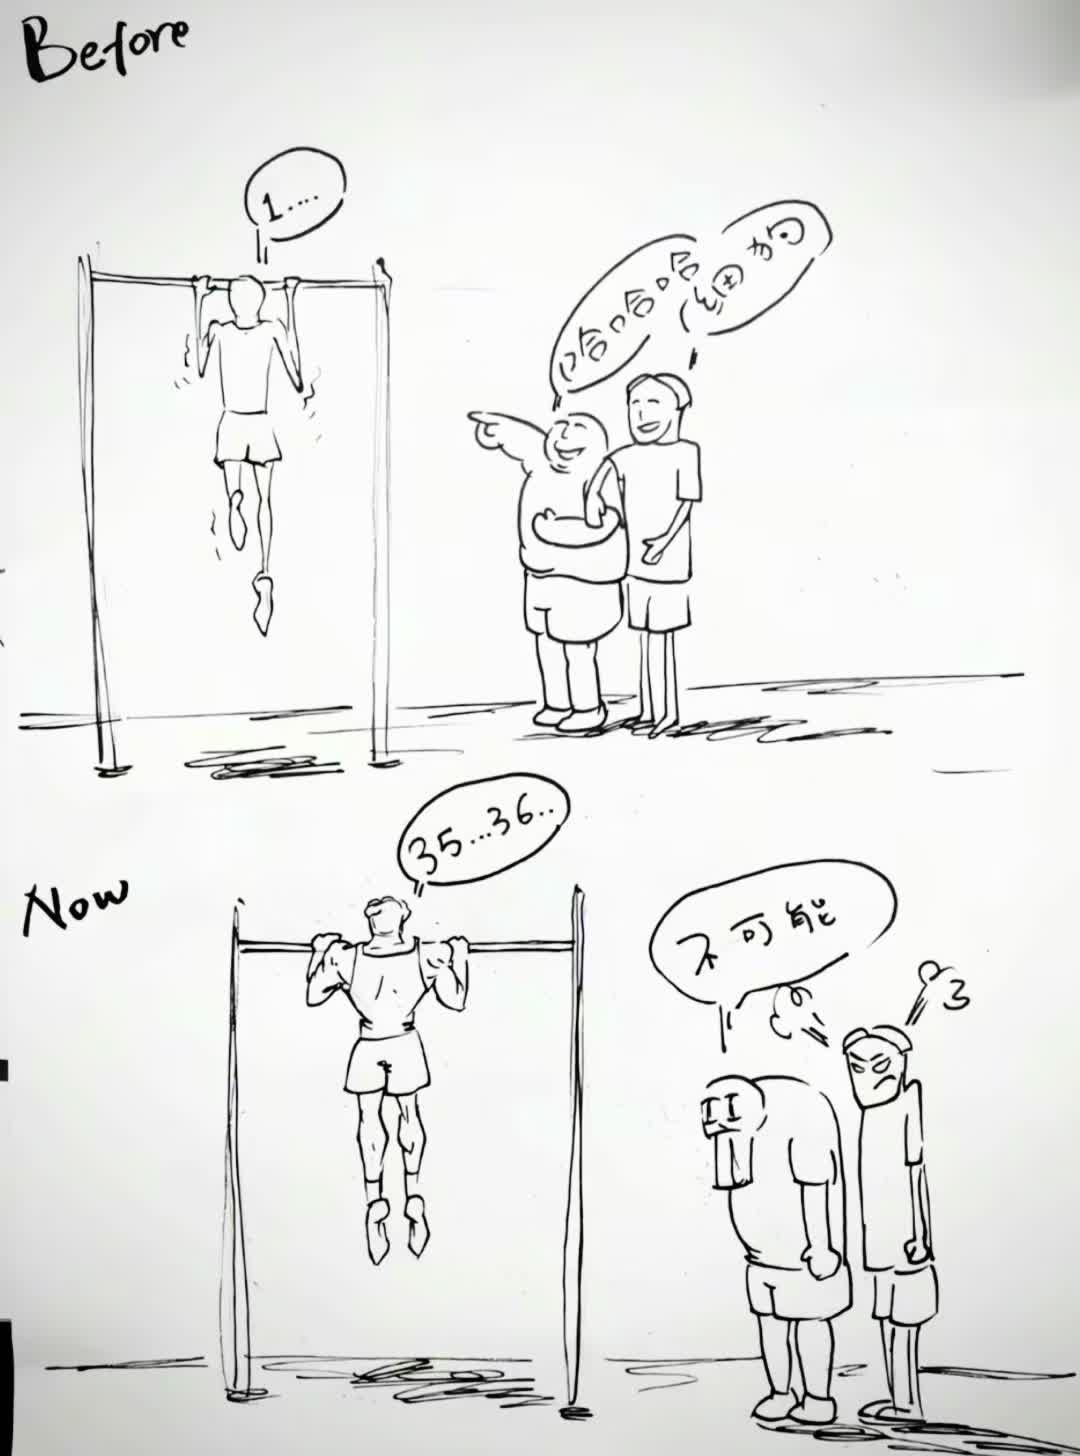 Before
1.....
哈哈哈哈
Now
35...36..
不可能